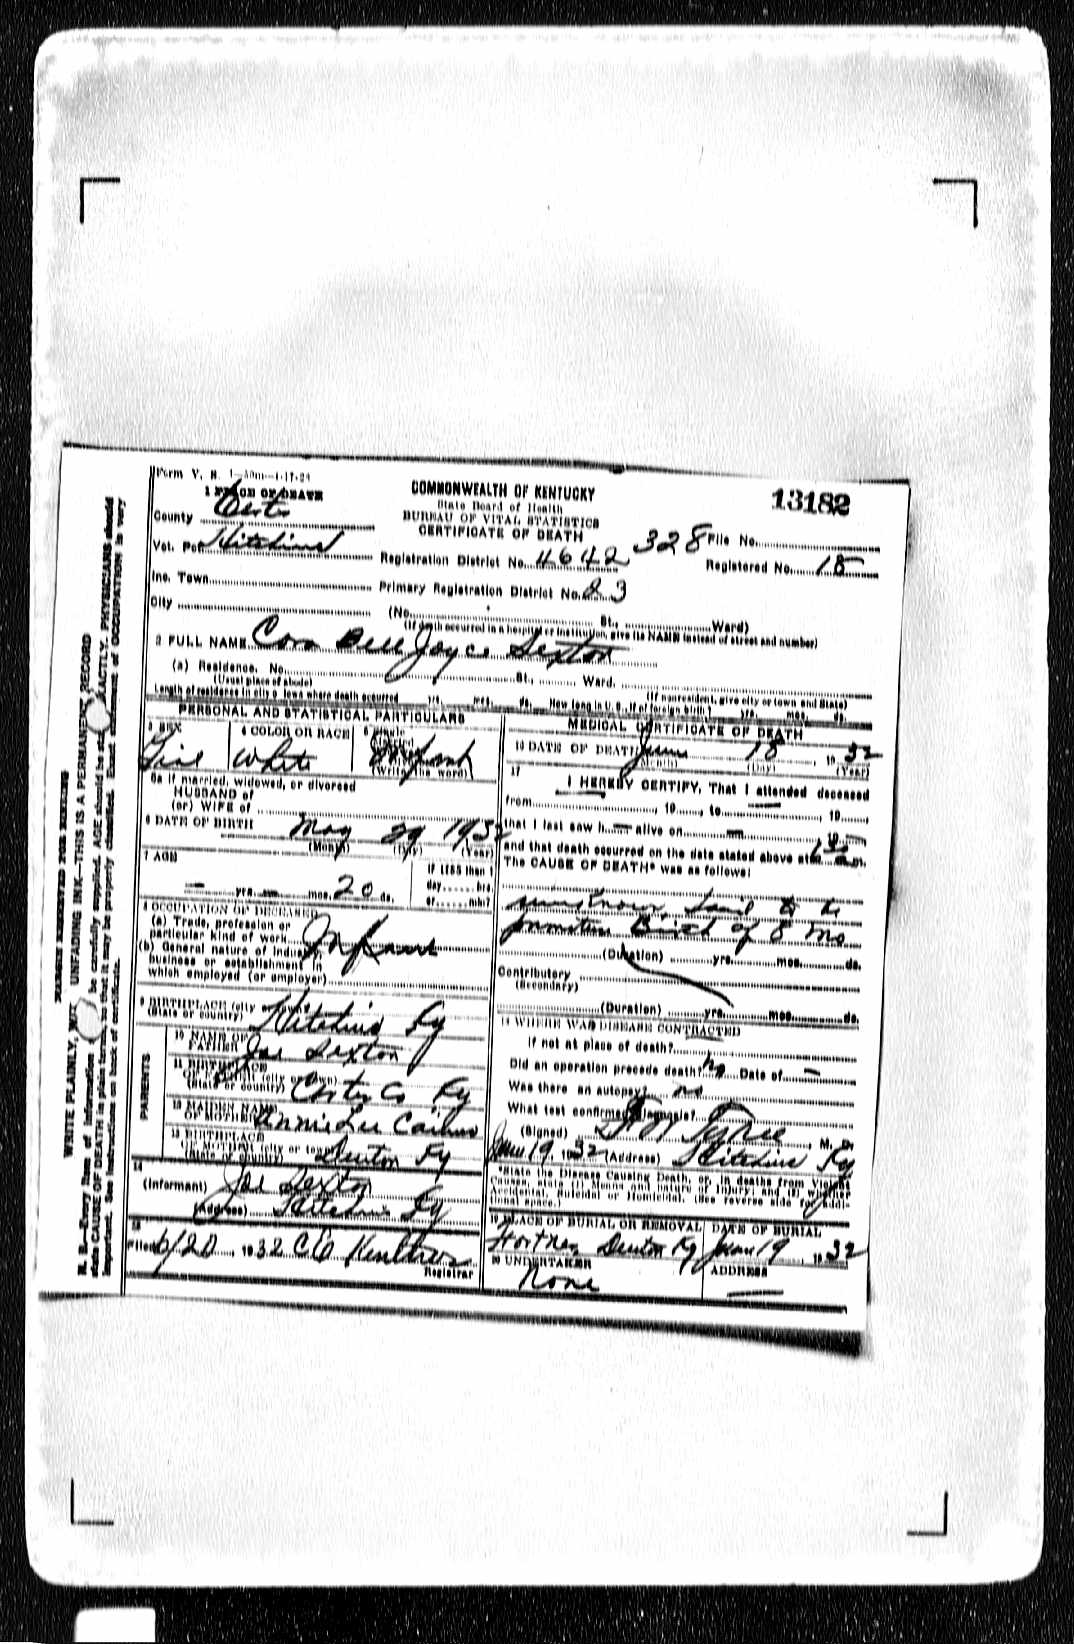 Form V. S. 1
COMMONWEALTH OF KENTUCKY
13182
1 PLACE OF DEATH
State Board of Health
BUREAU OF VITAL STATISTICS
CERTIFICATE OF DEATH
County
328 File No.
Vot. Pct. Hitchins
Registration District No. 4642
Registered No. 18
Inc. Town
Primary Registration District No. 23
City
(No. St., Ward)
(If death occurred in a hospital or institution, give its NAME instead of street and number)
2 FULL NAME Cora Bell Joyce Sexton
(a) Residence. No. St., Ward.
(Usual place of abode) (If nonresident, give city or town and State)
Length of residence in city or town where death occurred yrs. mos. ds. How long in U. S., if of foreign birth? yrs. mos. ds.
PERSONAL AND STATISTICAL PARTICULARS
3 SEX
4 COLOR OR RACE
5 Single
Girl
White
Infant
(Write the word)
5a If married, widowed, or divorced
HUSBAND of
(or) WIFE of
6 DATE OF BIRTH May 29 1932
(Month) (Day) (Year)
7 AGE
IF LESS than 1
day hrs.
— yrs. — mos. 20 ds.
or min?
8 OCCUPATION OF DECEASED
(a) Trade, profession or
particular kind of work Infant
(b) General nature of industry,
business or establishment in
which employed (or employer)
9 BIRTHPLACE (city or town)
(State or country) Hitchins Ky
PARENTS
10 NAME OF
FATHER Joe Sexton
11 BIRTHPLACE
OF FATHER (city or town)
(State or country) Carter Co Ky
12 MAIDEN NAME
OF MOTHER
13 BIRTHPLACE
OF MOTHER (city or town)
(State or country) Denton Ky
14
(Informant) Joe Sexton
(Address) Hitchins Ky
15
Filed 6/20, 1932
Registrar
MEDICAL CERTIFICATE OF DEATH
16 DATE OF DEATH June 18, 1932
(Month) (Day) (Year)
17
I HEREBY CERTIFY, That I attended deceased
from , 19 , to — , 19
that I last saw h — alive on — , 19 —
and that death occurred on the date stated above at m.
The CAUSE OF DEATH* was as follows:
unknown. Said to be
premature Birth of 8 mo
(Duration) yrs. mos. ds.
Contributory
(Secondary)
(Duration) yrs. mos. ds.
18 WHERE WAS DISEASE CONTRACTED
if not at place of death?
Did an operation precede death? No Date of —
Was there an autopsy? no
What test confirmed diagnosis?
(Signed) , M. D.
June 19, 1932 (Address) Hitchins Ky
*State the Disease Causing Death, or, in deaths from Violent
Causes, state (1) Means and nature of Injury; and (2) whether
Accidental, Suicidal or Homicidal. (See reverse side for additional space.)
19 PLACE OF BURIAL OR REMOVAL
DATE OF BURIAL
Denton Ky
June 19, 1932
20 UNDERTAKER
None
ADDRESS
—
MARGIN RESERVED FOR BINDING
WRITE PLAINLY, WITH UNFADING INK—THIS IS A PERMANENT RECORD
N. B.—Every item of information should be carefully supplied. AGE should be stated EXACTLY. PHYSICIANS should
state CAUSE OF DEATH in plain terms, so that it may be properly classified. Exact statement of OCCUPATION is very
important. See instructions on back of certificate.